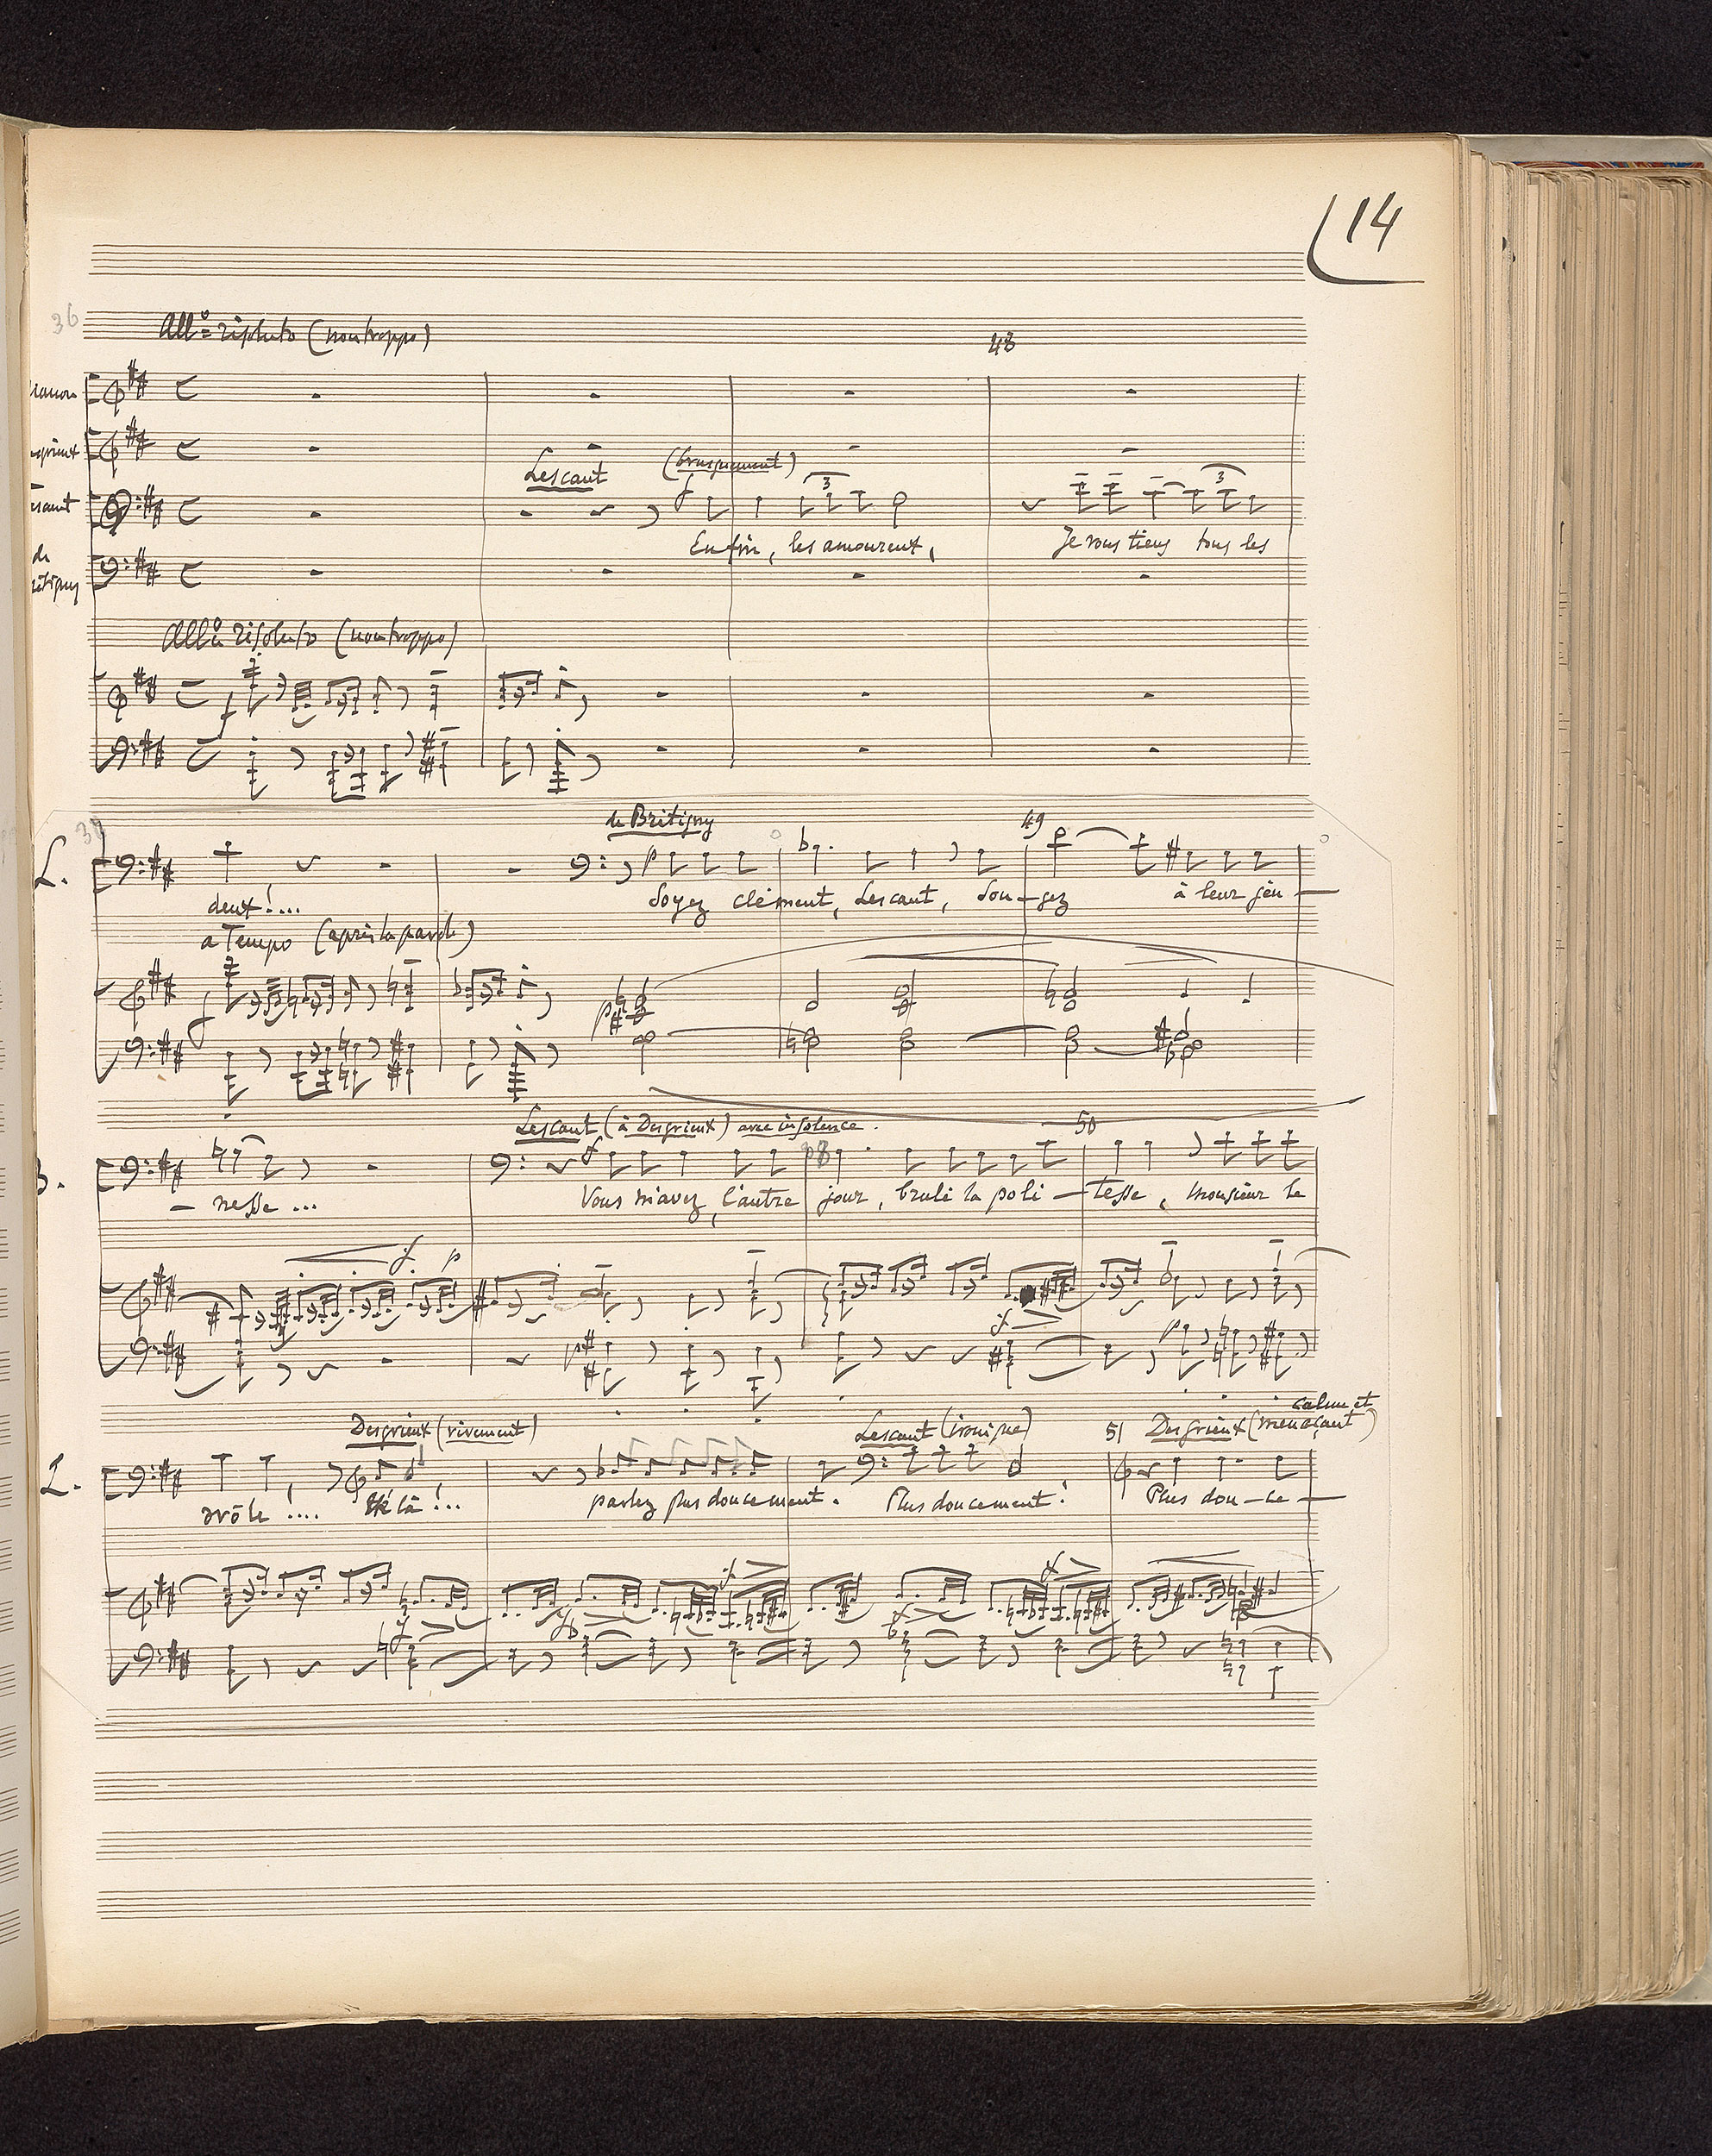 14
36
All° risoluto (non troppo)
48
Lescaut (brusquement)
f
3
3
Enfin, les amoureux, Je vous tiens tous les
de
All° risoluto (non troppo)
f
de Brétigny
49
L.
p
deux!... Soyez clément, Lescaut, Son-gez à leur jeu-
a Tempo (après la parole)
f
p
Lescaut (à Desgrieux) avec insolence.
50
f
- nesse ... Vous m'avez, l'autre jour, brulé la poli-tesse, Monsieur le
f p
f
p
p
calme et
Desgrieux (vivement) Lescaut (ironique) 51 Desgrieux (menaçant)
L.
drôle!.... Hé là!... parlez plus doucement. Plus doucement! Plus dou-ce-
f
f
f